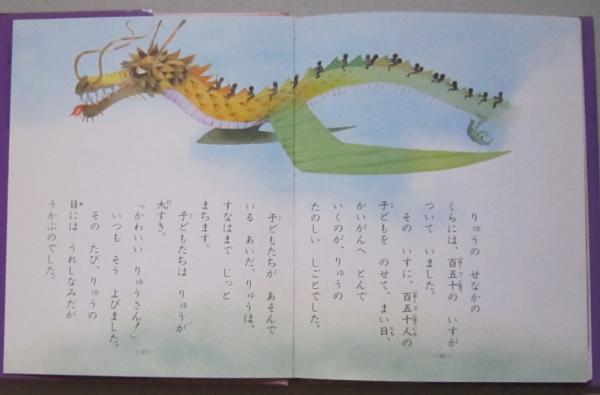 りゅうの せなかの
くらには、百五十の いすが
ついて いました。
その いすに、百五十人の
子どもを のせて、まい日、
かいがんへ とんで
いくのが、りゅうの
たのしい しごとでした。
子どもたちが あそんで
いる あいだ、りゅうは、
すなはまで じっと
まちます。
子どもたちは りゅうが
大すき。
「かわいい りゅうさん！」
いつも そう よびました。
その たび、りゅうの
目には うれしなみだが
うかぶのでした。